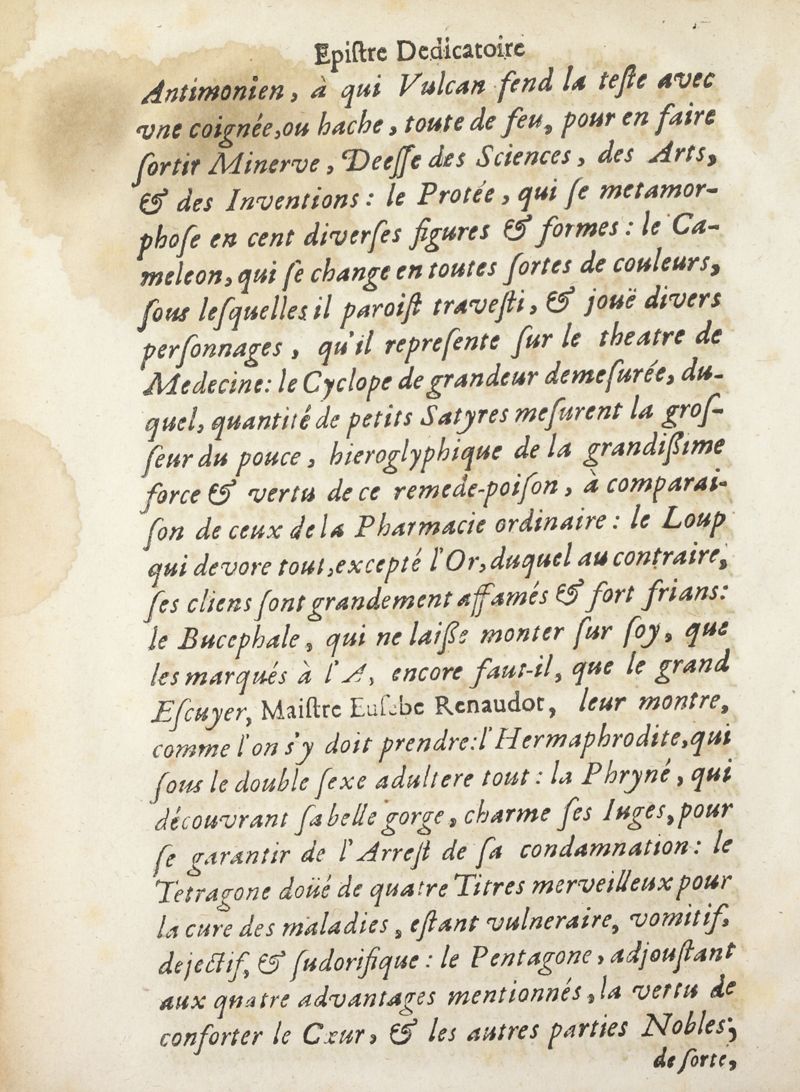 Epiſtre Dedicatoire
Antimonien, à qui Vulcan fend la teſte avec
vne coignée, ou hache, toute de feu, pour en faire
ſortir Minerve, Deeſſe des Sciences, des Arts,
& des Inventions : le Protée, qui ſe metamor-
phoſe en cent diverſes figures & formes : le Ca-
meleon, qui ſe change en toutes ſortes de couleurs,
ſous leſquelles il paroiſt traveſti, & jouë divers
perſonnages, qu'il repreſente ſur le theatre de
Medecine: le Cyclope de grandeur demeſurée, du-
quel, quantité de petits Satyres meſurent la groſ-
ſeur du pouce, hieroglyphique de la grandiſſime
force & vertu de ce remede-poiſon, à comparai-
ſon de ceux de la Pharmacie ordinaire : le Loup
qui devore tout, excepté l'Or, duquel au contraire,
ſes cliens ſont grandement affamés & fort frians:
le Bucephale, qui ne laiſſe monter ſur ſoy, que
les marqués à l'A, encore faut-il, que le grand
Eſcuyer, Maiſtre Euſebe Renaudot, leur montre,
comme l'on s'y doit prendre: l'Hermaphrodite, qui
ſous le double ſexe adultere tout : la Phryné, qui
découvrant ſa belle gorge, charme ſes Iuges, pour
ſe garantir de l'Arreſt de ſa condamnation : le
Tetragone doüé de quatre Titres merveilleux pour
la cure des maladies, eſtant vulneraire, vomitif,
dejectif, & ſudorifique : le Pentagone, adjouſtant
aux quatre advantages mentionnés, la vertu de
conforter le Cœur, & les autres parties Nobles;
de ſorte,